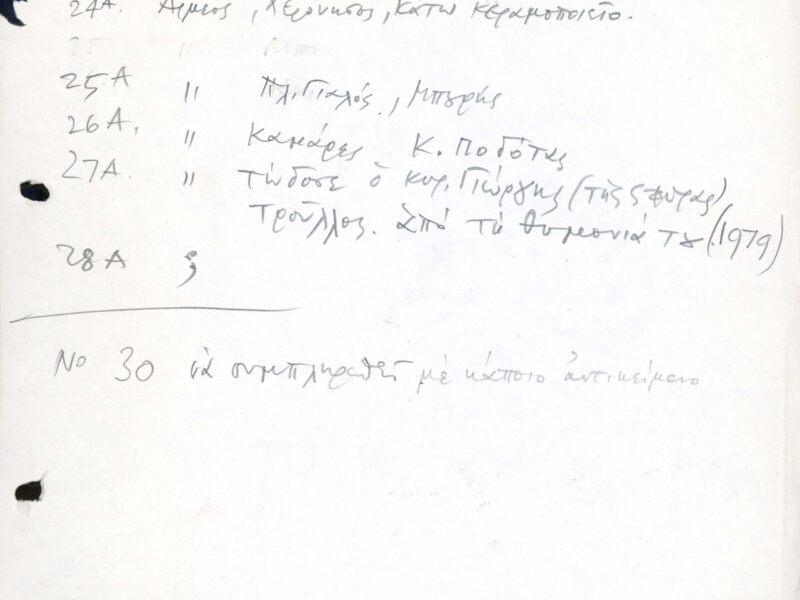 24Α. Χερόνησος, Κάτω Κεραμοποιείο.
25 " Μπ
25 Α " Πλ. Γιαλός, Μπερής
26 Α. " Καμάρες Κ. Ποδότας
27Α. " Τώδοσε ὁ κυρ. Γιώργης (τῆς Σφύρας)
Τροῦλλος. Ἀπό τή θυμωνιά τȣ (1979)
28 Α ;
Νο 30 νὰ συμπληρωθεῖ μὲ κάποιο ἀντικείμενο